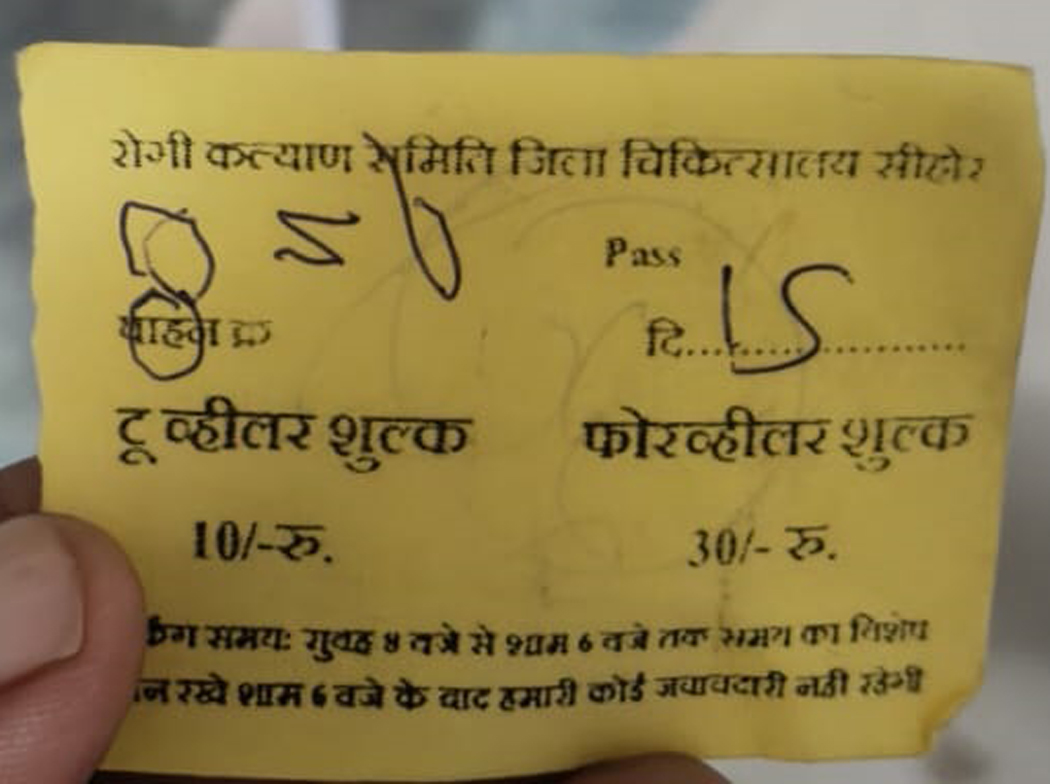 रोगी कल्याण समिति जिला चिकित्सालय सीहोर
Pass
वाहन क्र
दि.......................
15
टू व्हीलर शुल्क फोरव्हीलर शुल्क
10/-रु. 30/- रु.
समय: सुबह 8 बजे से शाम 6 बजे तक समय का विशेष
रखे शाम 6 बजे के बाद हमारी कोई जवाबदारी नही रहेगी